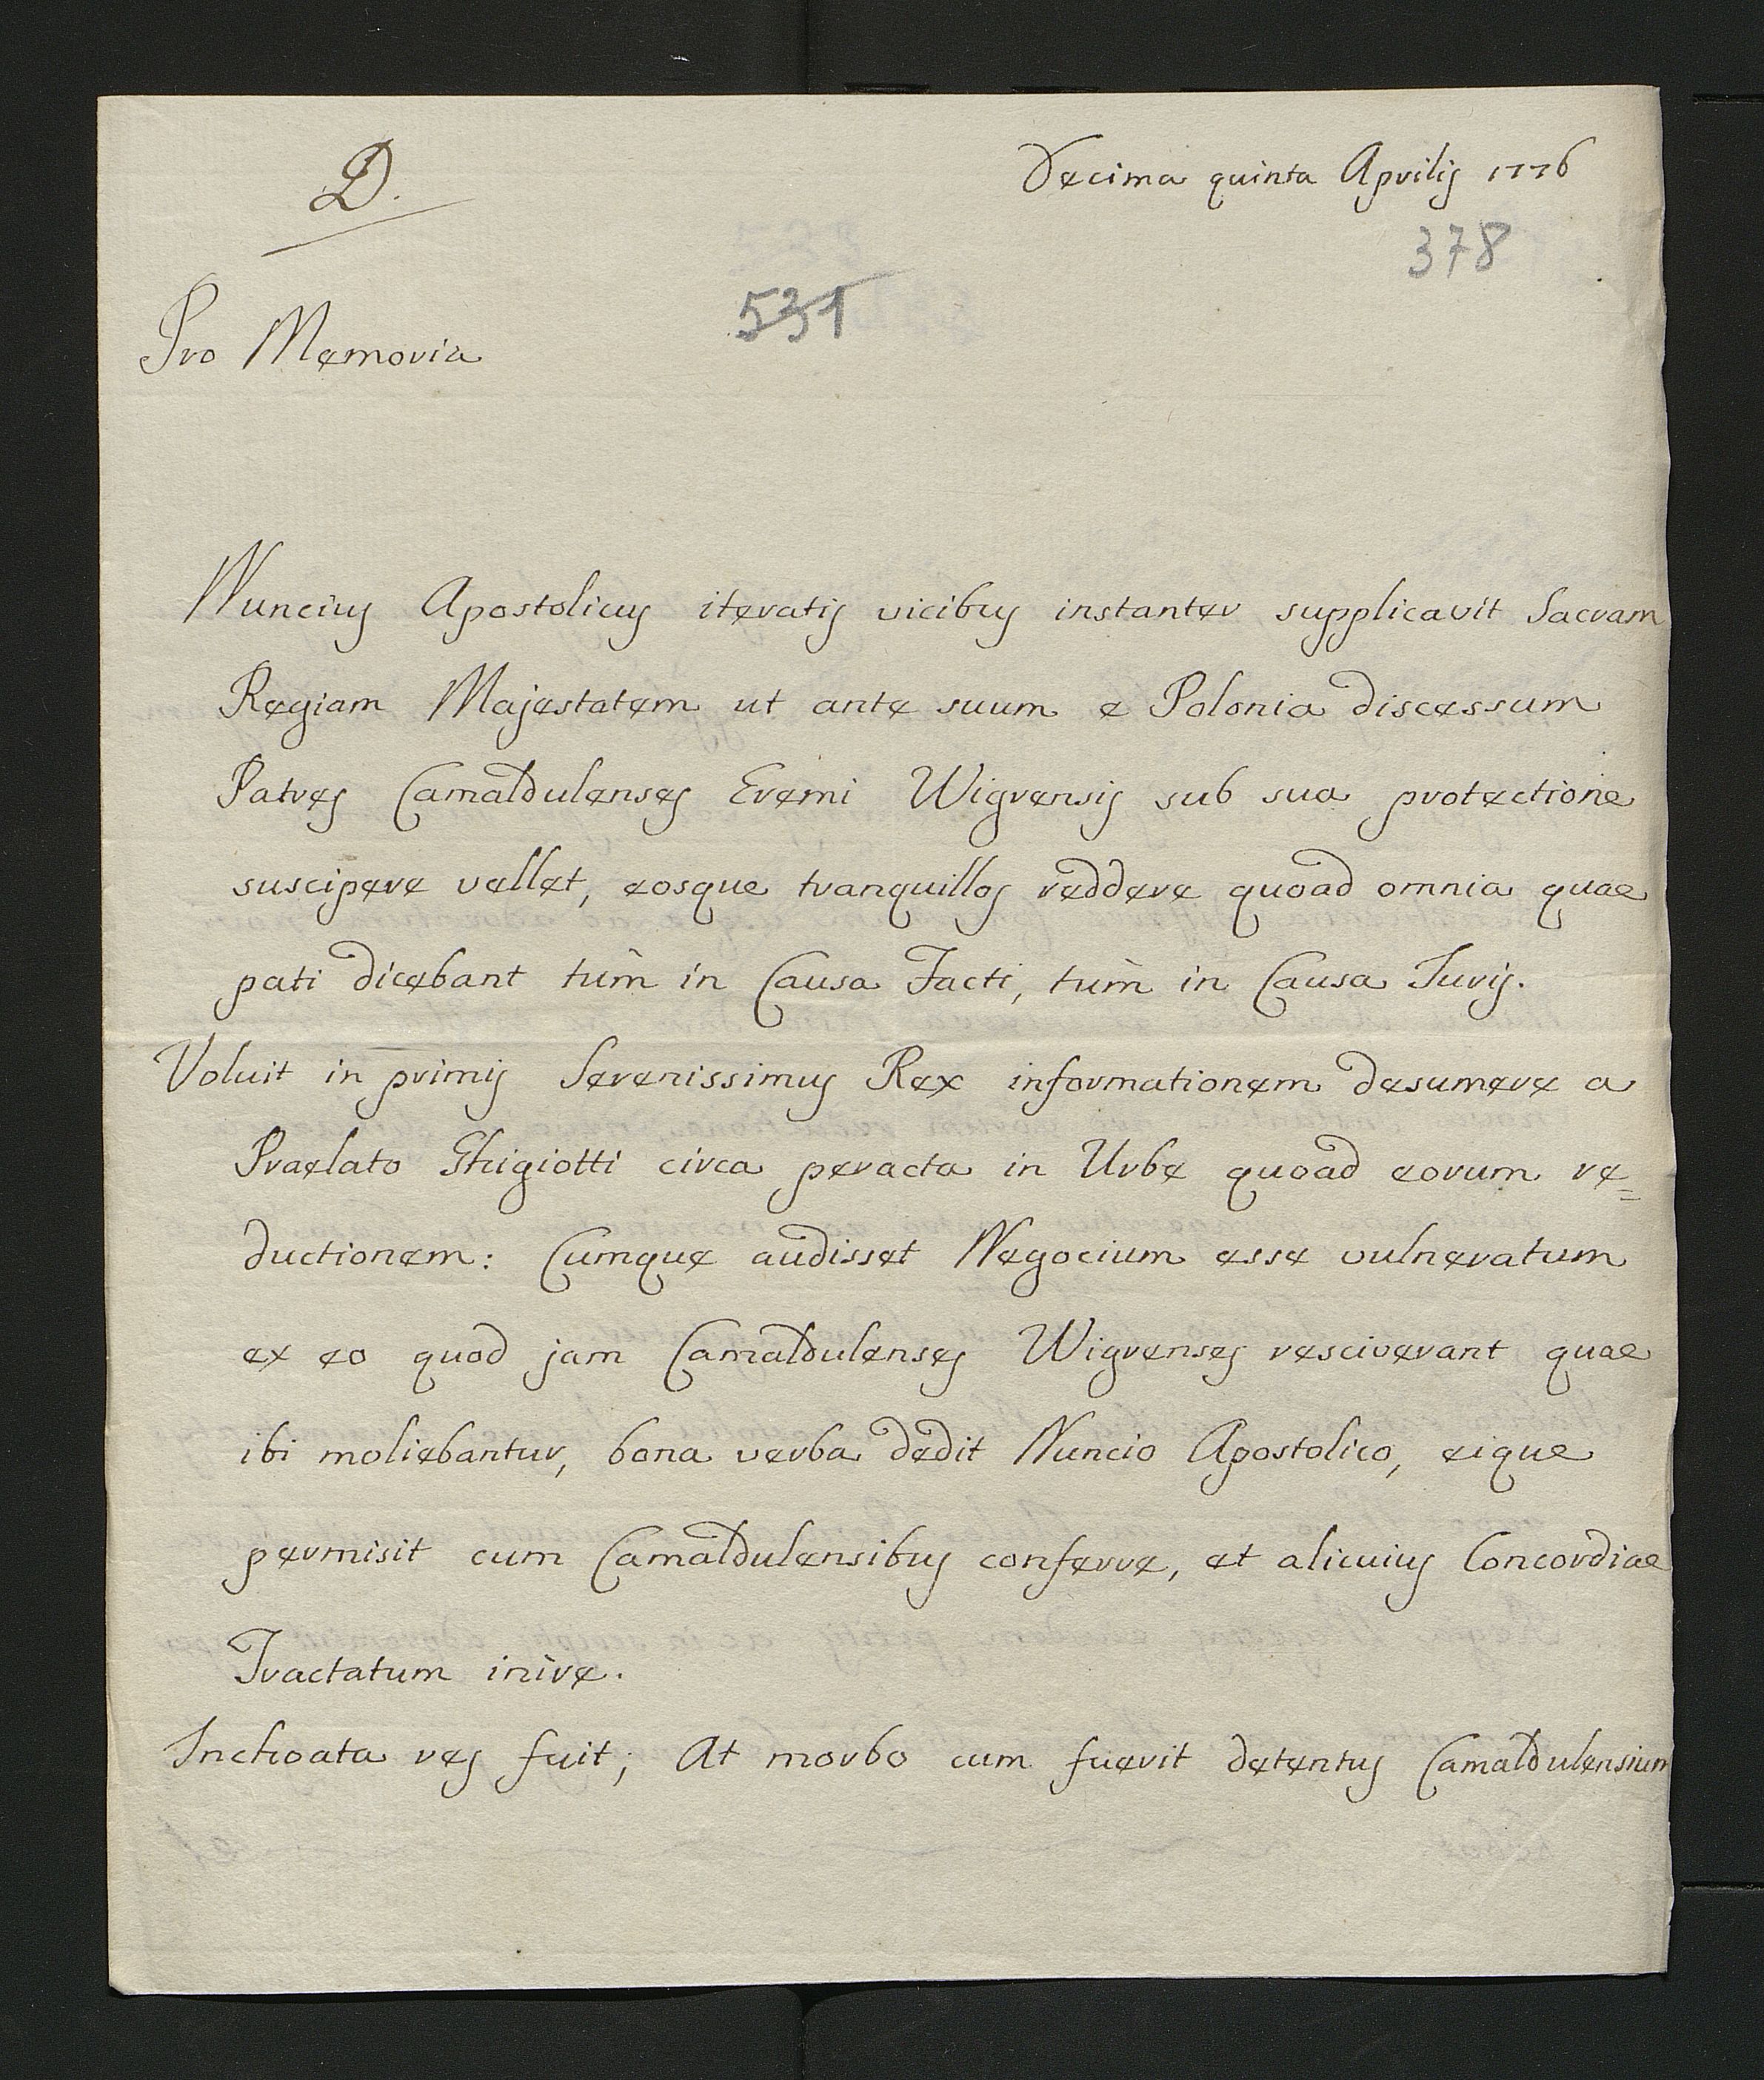 D.
Decima quinta Aprilis 1776
378
531
Pro Memoria
Nuncius Apostolicus iteratis vicibus instanter supplicavit Sacram
Regiam Majestatem ut ante suum e Polonia discessum
Patres Camaldulenses Eremi Wigrensis sub sua protectione
suscipere vellet, eosque tranquillos reddere quoad omnia quae
pati dicebant tùm in Causa Facti, tùm in Causa Juris.
Voluit in primis Serenissimus Rex informationem desumere a
Praelato Ghigiotti circa peracta in Urbe quoad eorum re=
ductionem: Cumque audisset Negocium esse vulneratum
ex eo quod jam Camaldulenses Wigrenses resciverant quae
ibi moliebantur, bona verba dedit Nuncio Apostolico, eique
permisit cum Camaldulensibus conferre, et alicuius Concordiae
Tractatum inire.
Inchoata res fuit; At morbo cum fuerit detentus Camaldulensium